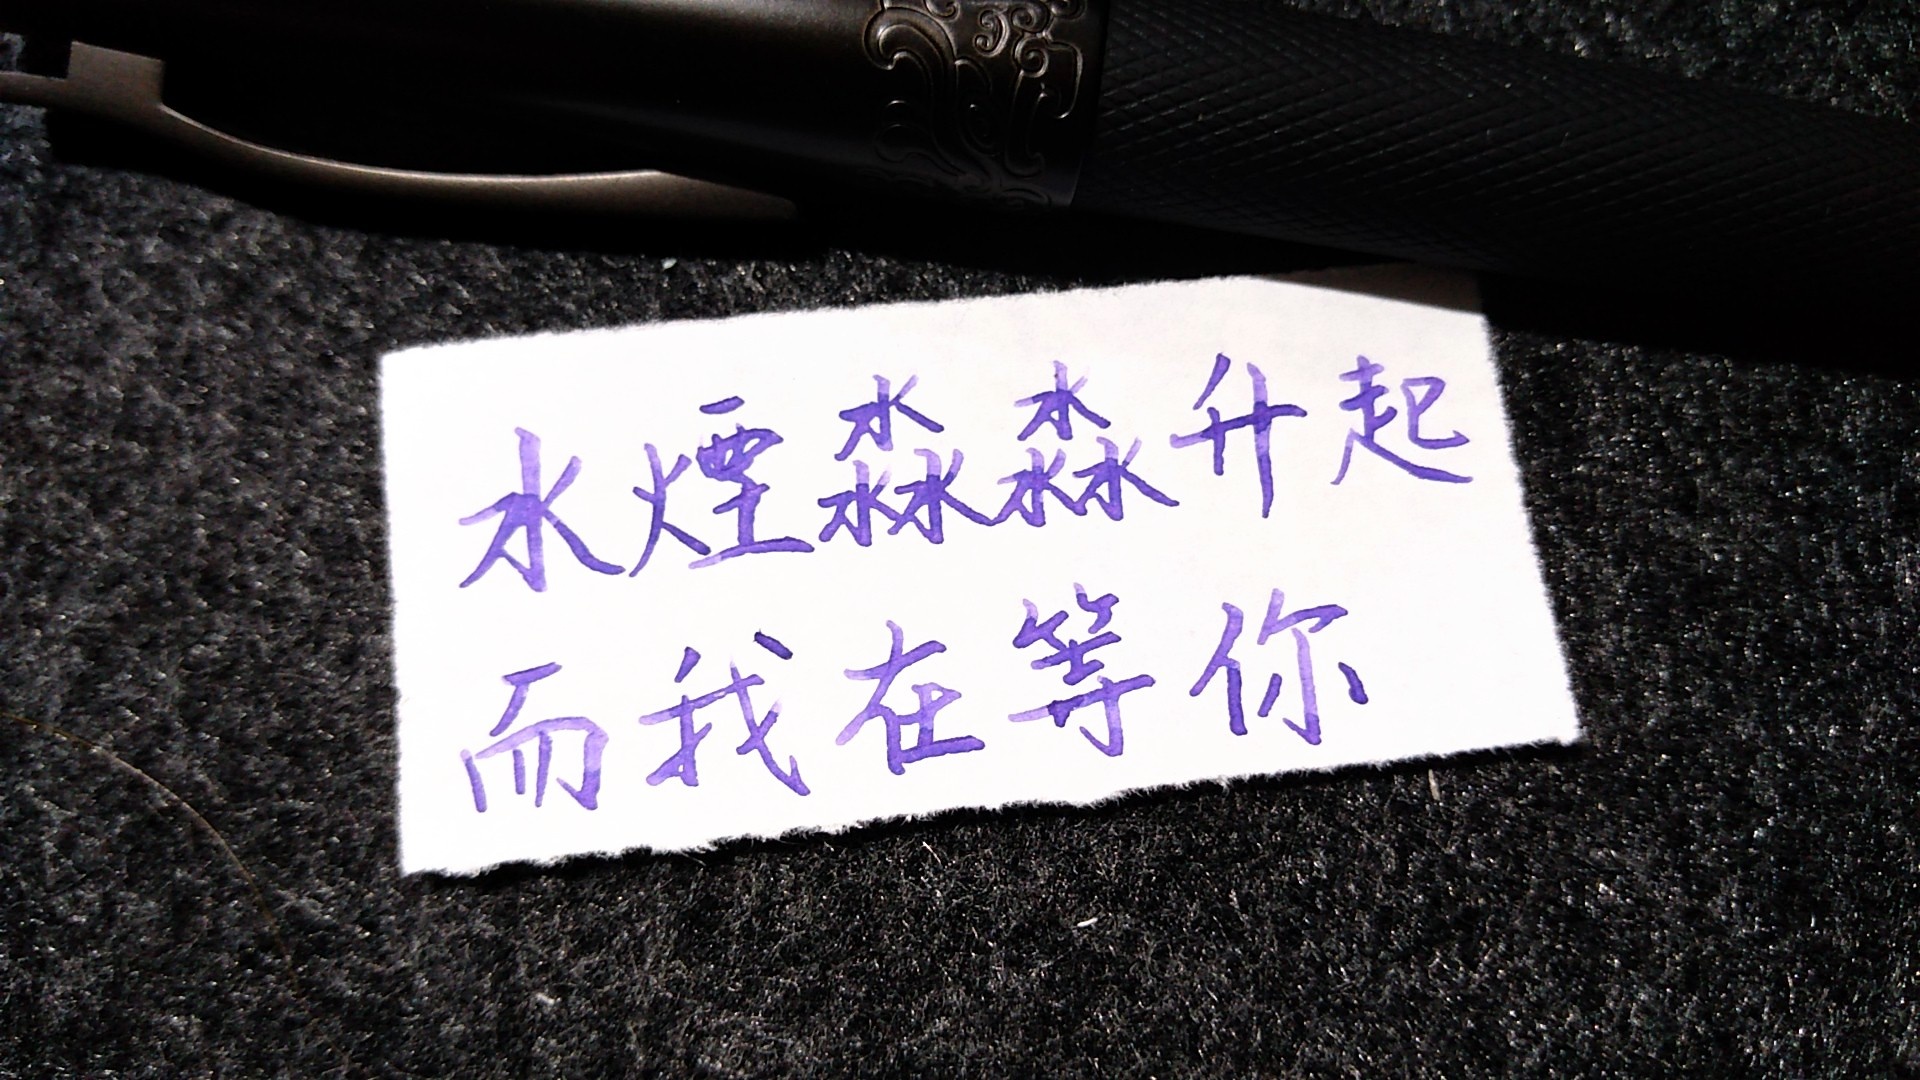 水煙淼淼升起
而我在等你